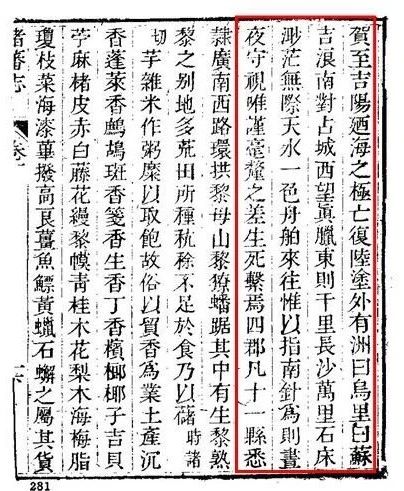 賀至吉陽廼海之極亡復陸塗外有洲曰烏里曰蘇
吉浪南對占城西望眞臘東則千里長沙萬里石床
渺茫無際天水一色舟舶來往惟以指南針爲則晝
夜守視唯謹毫釐之差生死繫焉四郡凡十一縣悉
隸廣南西路環拱黎母山黎獠蟠踞其中有生黎熟
黎之別地多荒田所種秔稌不足於食乃以藷時諸
切芋雜米作粥糜以取飽故俗以貿香爲業土產沉
香蓬萊香鷓鴣斑香箋香生香丁香檳榔椰子吉貝
苧麻楮皮赤白藤花縵黎幙青桂木花梨木海梅脂
瓊枝菜海漆蓽撥高良薑魚鰾黃蠟石蠏之屬其貨
諸蕃志
281